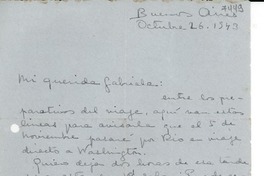 Buenos Aires
Octubre 26. 1943
Mi querida Gabriela:
entre los pre-
parativos del viaje, aquí van estas
líneas para avisarla que el 5 de
noviembre pasaré por Rio en viaje
directo a Washington.
Quiero dejar dos horas de esa tarde